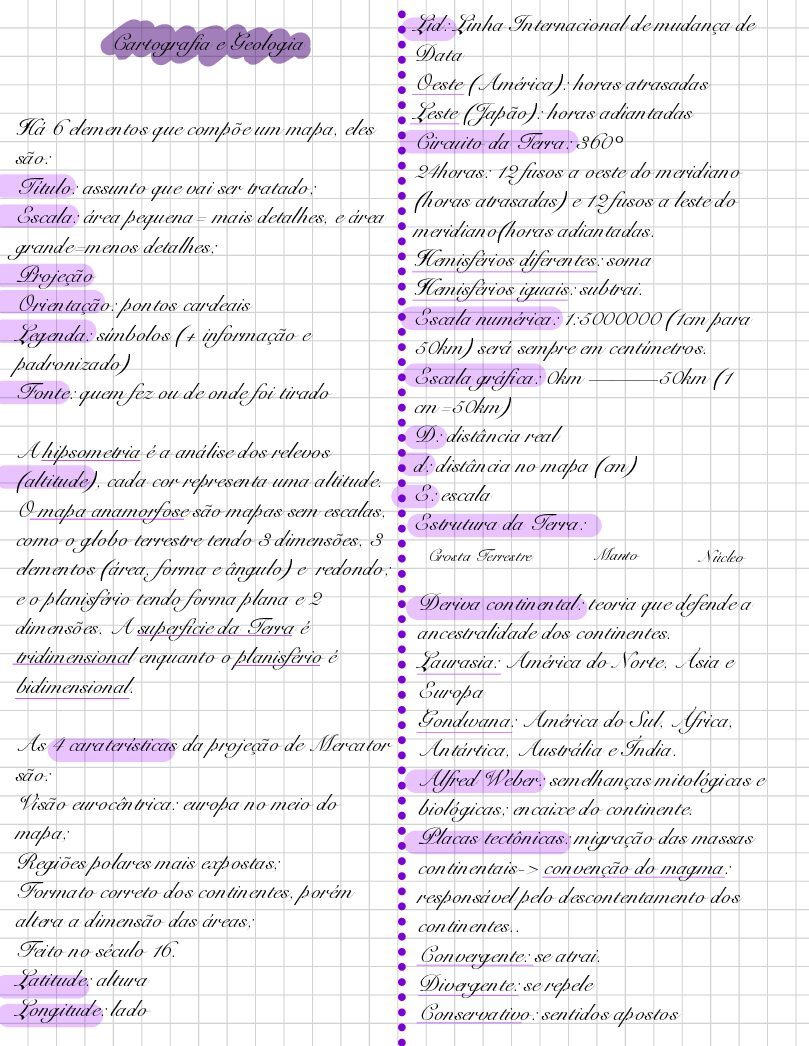 Cartografia e Geologia
Há 6 elementos que compõe um mapa, eles
são:
Título: assunto que vai ser tratado;
Escala: área pequena= mais detalhes, e área
grande=menos detalhes;
Projeção
Orientação: pontos cardeais
Legenda: símbolos (+ informação e
padronizado)
Fonte: quem fez ou de onde foi tirado
A hipsometria é a análise dos relevos
(altitude), cada cor representa uma altitude.
O mapa anamorfose são mapas sem escalas,
como o globo terrestre tendo 3 dimensões, 3
elementos (área, forma e ângulo) e redondo;
e o planisfério tendo forma plana e 2
dimensões. A superfície da Terra é
tridimensional enquanto o planisfério é
bidimensional.
As 4 caraterísticas da projeção de Mercator
são:
Visão eurocêntrica: europa no meio do
mapa;
Regiões polares mais expostas;
Formato correto dos continentes, porém
altera a dimensão das áreas;
Feito no século 16.
Latitude: altura
Longitude: lado
Lid: Linha Internacional de mudança de
Data
Oeste (América): horas atrasadas
Leste (Japão): horas adiantadas
Circuito da Terra: 360°
24horas: 12 fusos a oeste do meridiano
(horas atrasadas) e 12 fusos a leste do
meridiano(horas adiantadas.
Hemisférios diferentes: soma
Hemisférios iguais: subtrai.
Escala numérica: 1:5000000 (1cm para
50km) será sempre em centímetros.
Escala gráfica: 0km ————50km (1
cm =50km)
D: distância real
d: distância no mapa (cm)
E: escala
Estrutura da Terra:
Crosta Terrestre Manto Núcleo
Deriva continental: teoria que defende a
ancestralidade dos continentes.
Laurasia: América do Norte, Ásia e
Europa
Gondwana: América do Sul, África,
Antártica, Austrália e Índia.
Alfred Weber: semelhanças mitológicas e
biológicas; encaixe do continente.
Placas tectônicas: migração das massas
continentais-> convenção do magma:
responsável pelo descontentamento dos
continentes..
Convergente: se atrai.
Divergente: se repele
Conservativo: sentidos apostos